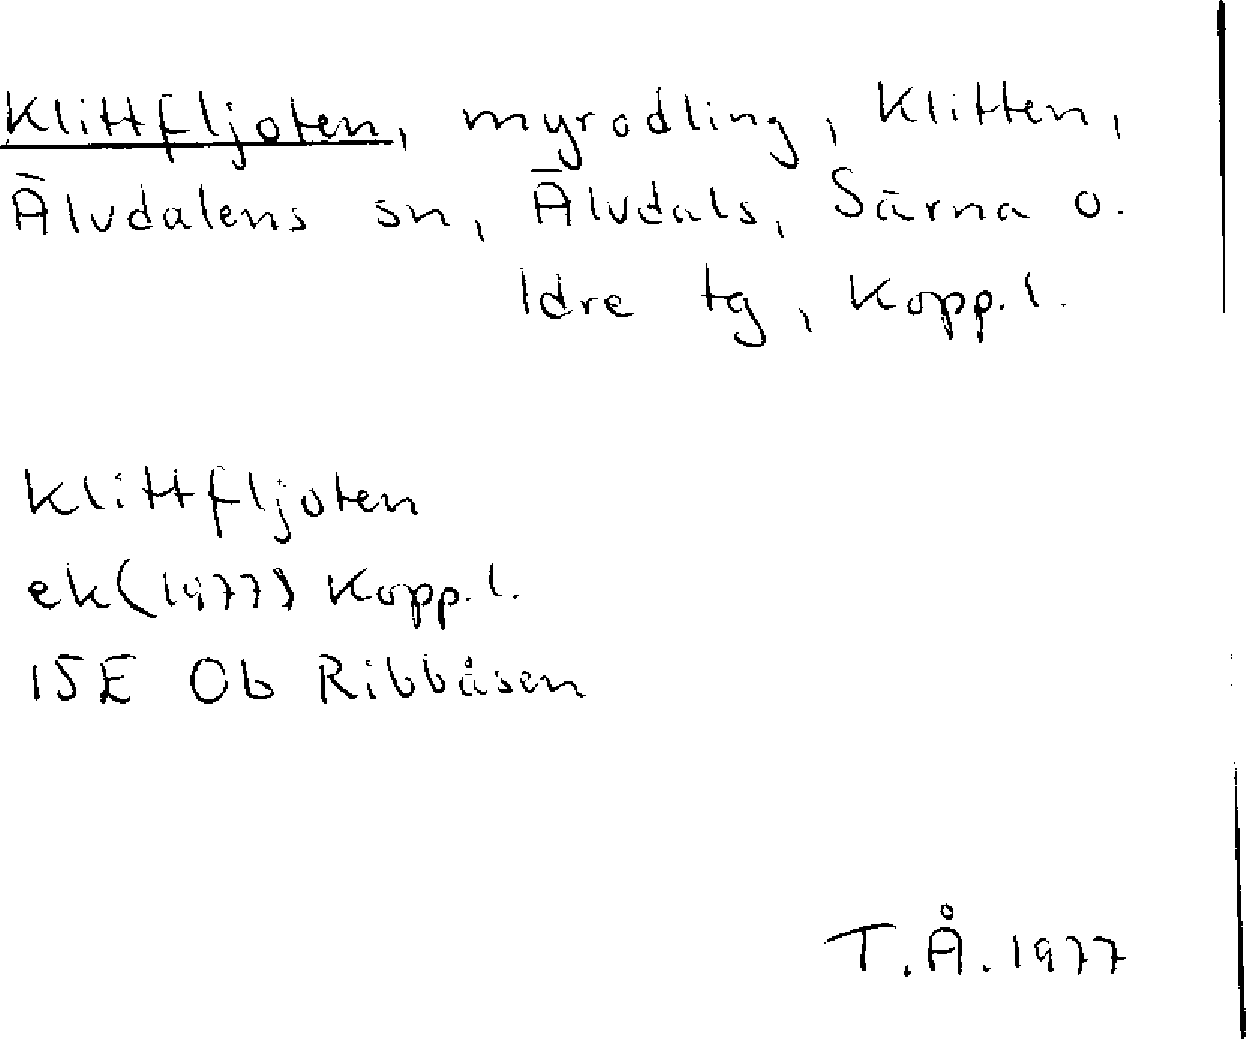 Klittfljoten, myrodling, Klitten,
Älvdalens sn, Älvdals, Särna o.
Idre tg, Kopp. l.
Klittfljoten
ek (1977) Kopp. l.
15E 0b Ribbåsen
T.Å. 1977